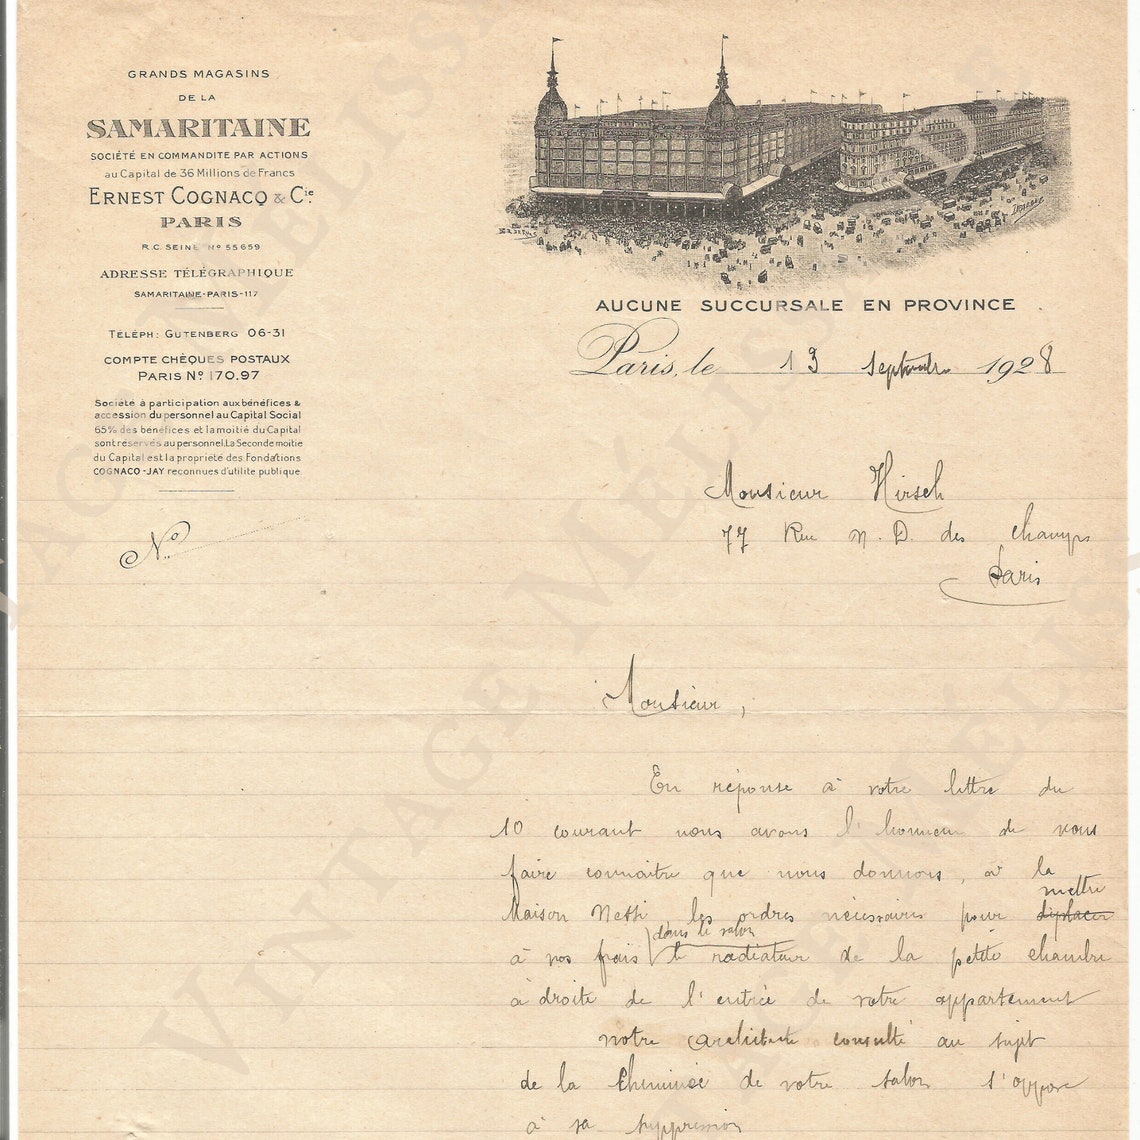 GRANDS MAGASINS
DE LA
SAMARITAINE
SOCIÉTÉ EN COMMANDITE PAR ACTIONS
au Capital de 36 Millions de Francs
ERNEST COGNACQ & Cie
PARIS
R.C. SEINE No 55659
ADRESSE TÉLÉGRAPHIQUE
SAMARITAINE-PARIS-117
TÉLÉPH: GUTENBERG 06-31
COMPTE CHÈQUES POSTAUX
PARIS No 170.97
Société à participation aux bénéfices &
accession du personnel au Capital Social
65% des bénéfices et la moitié du Capital
sont réservés au personnel. La Seconde moitié
du Capital est la propriété des Fondations
COGNACQ-JAY reconnues d'utilité publique
No
AUCUNE SUCCURSALE EN PROVINCE
Paris, le 13 septembre 1928
Monsieur Hirsch
77 Rue N. D. des champs
Paris
Monsieur,
En réponse à votre lettre du
10 courant nous avons l'honneur de vous
faire connaitre que nous donnons, à la
mettre
Maison les ordres nécessaires pour déplacer
dans le salon
à vos frais le radiateur de la petite chambre
à droite de l'entrée de votre appartement
notre architecte consulté au sujet
de la cheminée de votre salon s'oppose
à sa suppression
VINTAGE MÉLISSA